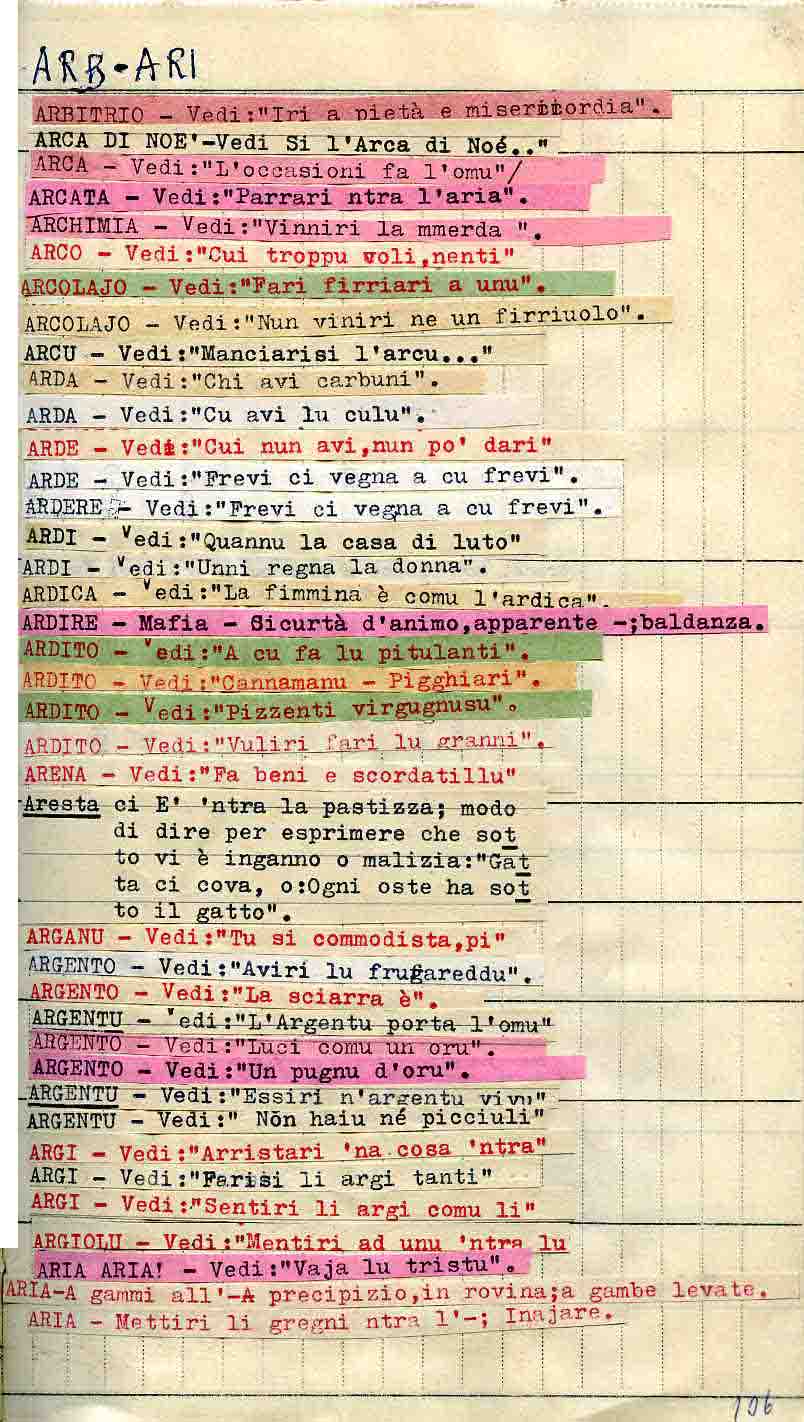 ARB-ARI
ARBITRIO - Vedi:"Iri a pietà e misericordia".
ARCA DI NOE'-Vedi Si l'Arca di Noé.."
ARCA - Vedi:"L'occasioni fa l'omu"/
ARCATA - Vedi:"Parrari ntra l'aria".
ARCHIMIA - Vedi:"Vinniri la mmerda ".
ARCO - Vedi:"Cui troppu voli,nenti"
ARCOLAJO - Vedi:"Fari firriari a unu".
ARCOLAJO - Vedi:"Nun viniri ne un firriuolo".
ARCU - Vedi:"Manciarisi l'arcu..."
ARDA - Vedi:"Chi avi carbuni".
ARDA - Vedi:"Cu avi lu culu".
ARDE - Vedi:"Cui nun avi,nun po' dari"
ARDE - Vedi:"Frevi ci vegna a cu frevi".
ARDERE - Vedi:"Frevi ci vegna a cu frevi".
ARDI - Vedi:"Quannu la casa di luto"
ARDI - Vedi:"Unni regna la donna".
ARDICA - Vedi:"La fimmina è comu l'ardica".
ARDIRE - Mafia - Sicurtà d'animo,apparente -;baldanza.
ARDITO - Vedi:"A cu fa lu pitulanti".
ARDITO - Vedi:"Cannamanu - Pigghiari".
ARDITO - Vedi:"Pizzenti virgugnusu".
ARDITO - Vedi:"Vuliri fari lu granni".
ARENA - Vedi:"Fa beni e scordatillu"
Aresta ci E' 'ntra la pastizza; modo
di dire per esprimere che sot
to vi è inganno o malizia:"Gat
ta ci cova, o:Ogni oste ha sot
to il gatto".
ARGANU - Vedi:"Tu si commodista,pi"
ARGENTO - Vedi:"Aviri lu frugareddu".
ARGENTO - Vedi:"La sciarra è".
ARGENTU - Vedi:"L'Argentu porta l'omu"
ARGENTO - Vedi:"Luci comu un oru".
ARGENTO - Vedi:"Un pugnu d'oru".
ARGENTU - Vedi:"Essiri n'argentu vivu"
ARGENTU - Vedi:" Nōn haiu né picciuli"
ARGI - Vedi:"Arristari 'na cosa 'ntra"
ARGI - Vedi:"Farisi li argi tanti"
ARGI - Vedi:"Sentiri li argi comu li"
ARGIOLU - Vedi:"Mentiri ad unu 'ntra lu
ARIA ARIA! - Vedi:"Vaja lu tristu".
ARIA-A gammi all'-A precipizio,in rovina;a gambe levate.
ARIA - Mettiri li gregni ntra l'-; Inajare.
106